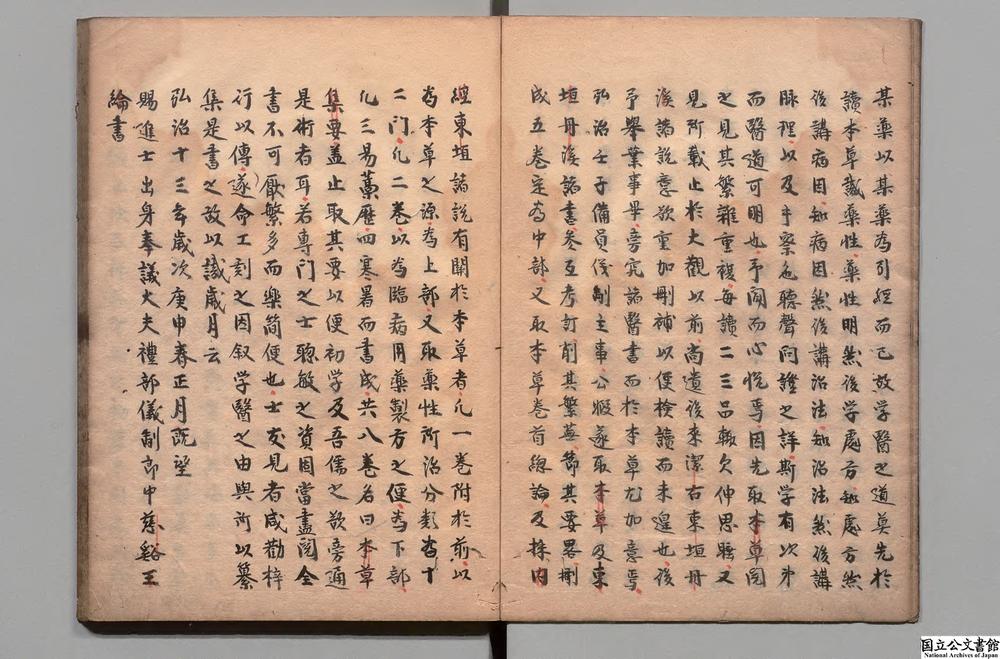 某藥以某藥為引經而已故学醫之道莫先於
讀本草識藥性藥性明然後学處方知處方然
後講病因知病因然後講治法知治法然後講
脉理以及乎察色聽聲問證之詳斯学有次第
而醫道可明也予聞而心悦焉因先取本草閲
之見其繁雜重複每讀二三品輒欠伸思睡又
見所載止於大觀以前尚遺後来潔古東垣丹
溪諸說意欲重加刪補以便檢讀而未遑也後
予舉業事畢旁究諸醫書而於本草尤加意焉
弘治壬子備員儀制主事公暇遂取本草及東
垣丹溪諸書参互考訂削其繁蕪節其要畧刪
成五巻定為中部又取本草巻首緫論及採内
經東垣諸說有關於本草者凡一巻附於前以
為本草之源為上部又取藥性所治分類為十
二門凡二巻以為臨病用藥製方之便為下部
凡三易藁歷四寒暑而書成共八巻名曰本草
集要盖止取其要以便初学及吾儒之欲旁通
是術者耳若專門之士聦敏之資固當盡閲全
書不可厭繁多而樂简便也士友見者咸勸梓
行以傳遂命工刻之因叙学醫之由與所以纂
集是書之故以識歲月云
弘治十三年歲次庚申春正月既望
賜進士出身奉議大夫禮部儀制郎中慈谿王
綸書
国立公文書館
National Archives of Japan